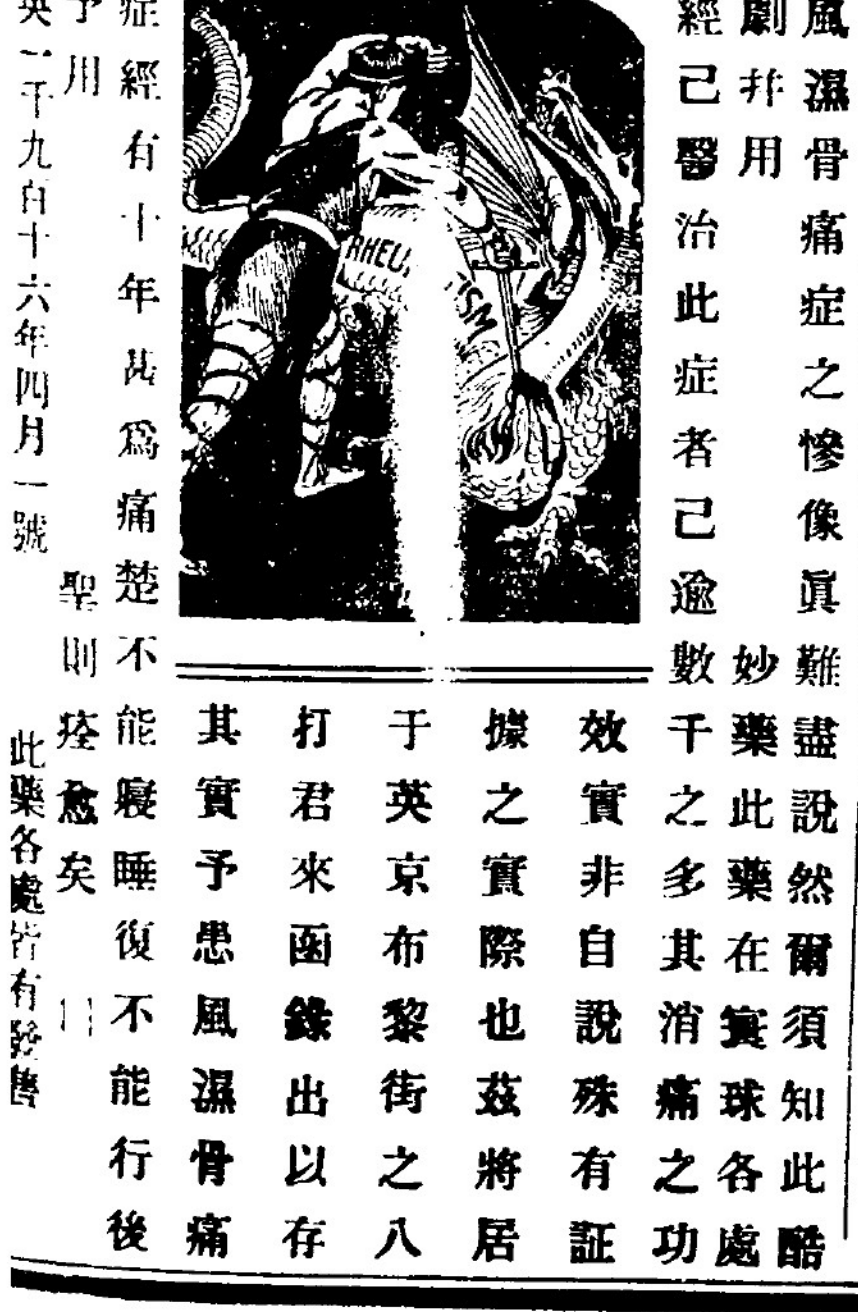 風濕骨痛症之慘像眞難盡說然爾須知此酷
劇非用 妙藥此藥在寰球各處
經己醫治此症者己逾數千之多其消痛之功
效實非自說殊有証
據之實際也茲將居
于英京布黎街之八
打君來函錄出以存
其實予患風濕骨痛
症經有十年甚爲痛楚不能寢睡復不能行後
予用 聖則痊愈矣
英一千九百十六年四月一號 此藥各處皆有發售
RHEU TISM